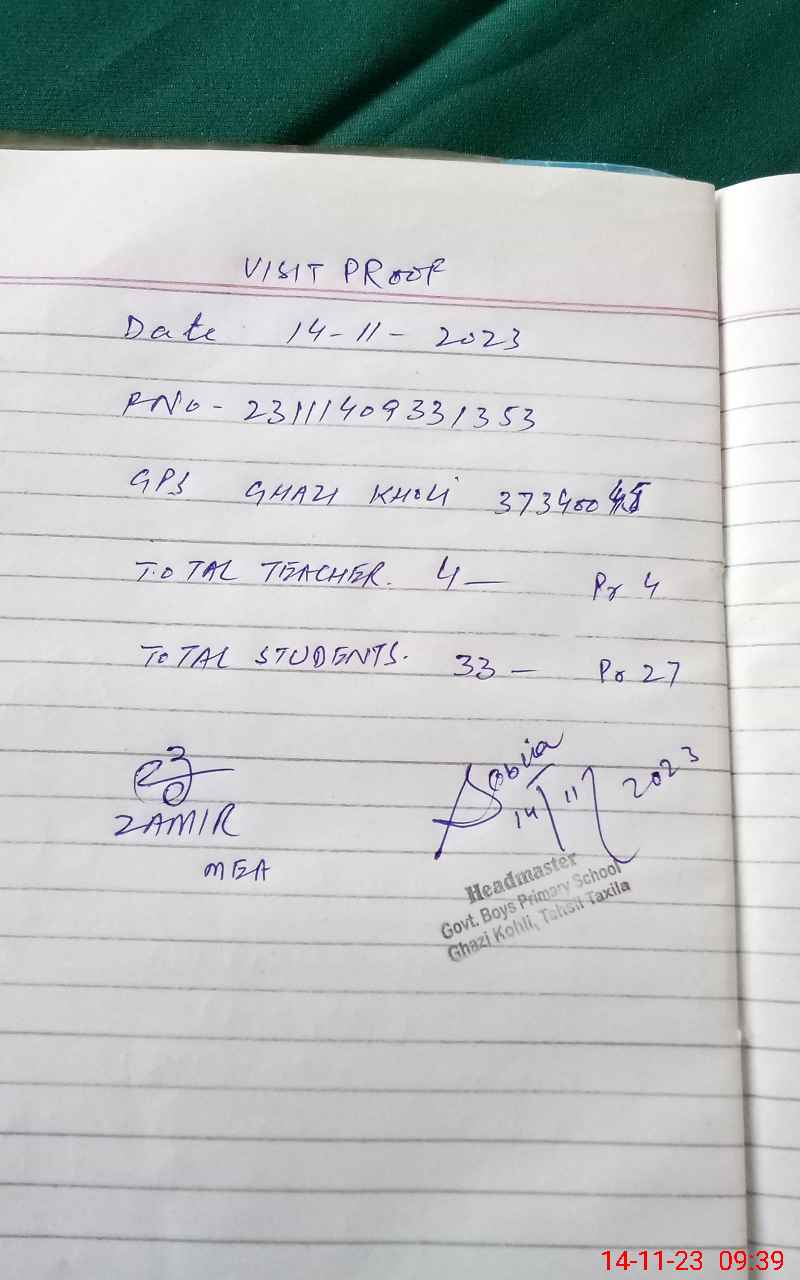 VISIT PROOF
Date 14-11-2023
RNo - 23111409331353
GPS GHAZI KHOLI 373400
TOTAL TEACHER. 4 — Pr 4
TOTAL STUDENTS. 33 — Pr 27
Sobiia
14/11/2023
ZAMIR
MEA
Headmaster
Govt. Boys Primary School
Ghazi Kohli, Tehsil Taxila
14-11-23 09:39